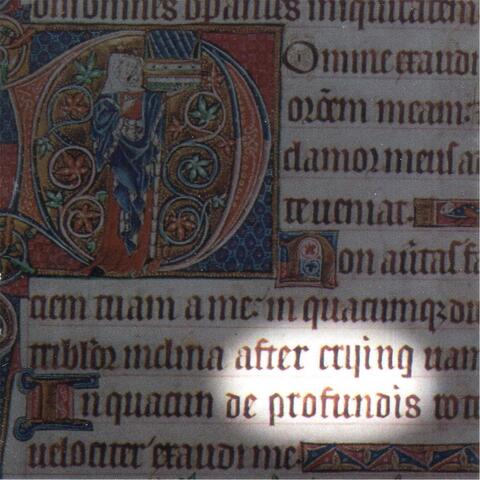 omnes opantes iniquitatem
Domine exaudi
orōem meam:
clamor meus a
te veniat.
Non aūtas fa
ciem tuam a me: in quacumqz di
tribl'or inclina after crying uam
In quacum de profundis
velociter exaudi me: